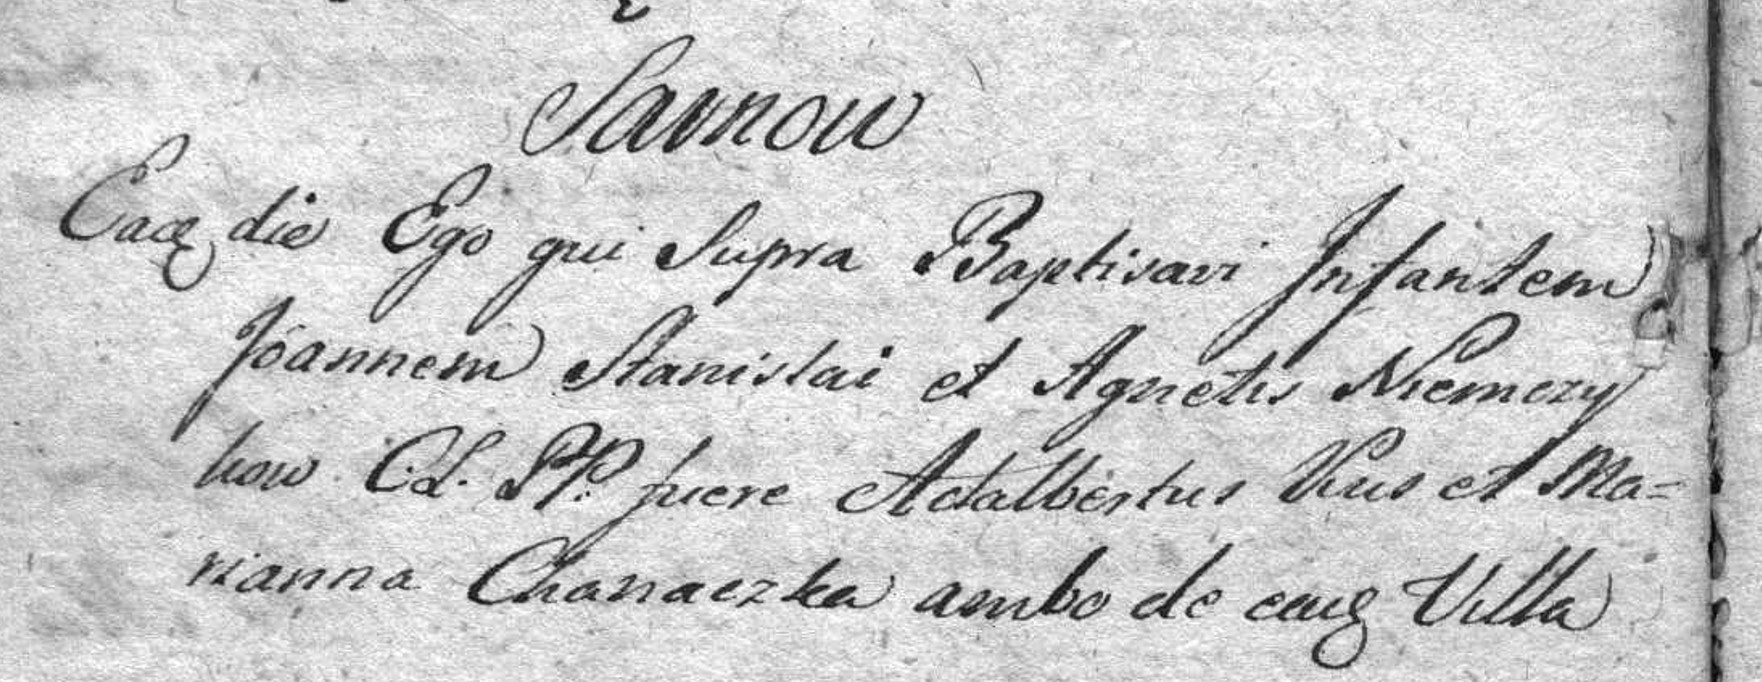 Sarnow
Eaq die Ego qui Supra Baptisavi Infantem
Joannem Stanislai et Agnetis Niemczy
kow C.L. PP. fuere Adalbertus Kus et Ma=
rianna Chanaczka ambo de eaq Villa